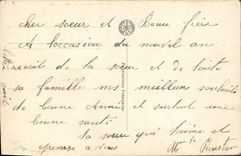 cher soeur et Beau frère
A loccasion du nouvel an
recoit de la soeur et de toute
sa famille nos meilleurs souhaits
de bonne Année et surtout une
bonne santé
ta soeur qui taime et
pense a vous
Mme